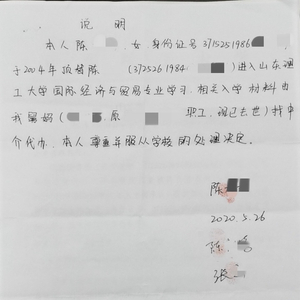 说 明
本人陈 ,女,身份证号 3715251986
于2004年顶替陈 (372526 1984 )进入山东理
工大学国际经济与贸易专业学习,相关入学材料由
我舅妈( ,原 职工,现已去世)找中
介代办,本人尊重并服从学校的处理决定。
陈
2020.5.26
陈
张